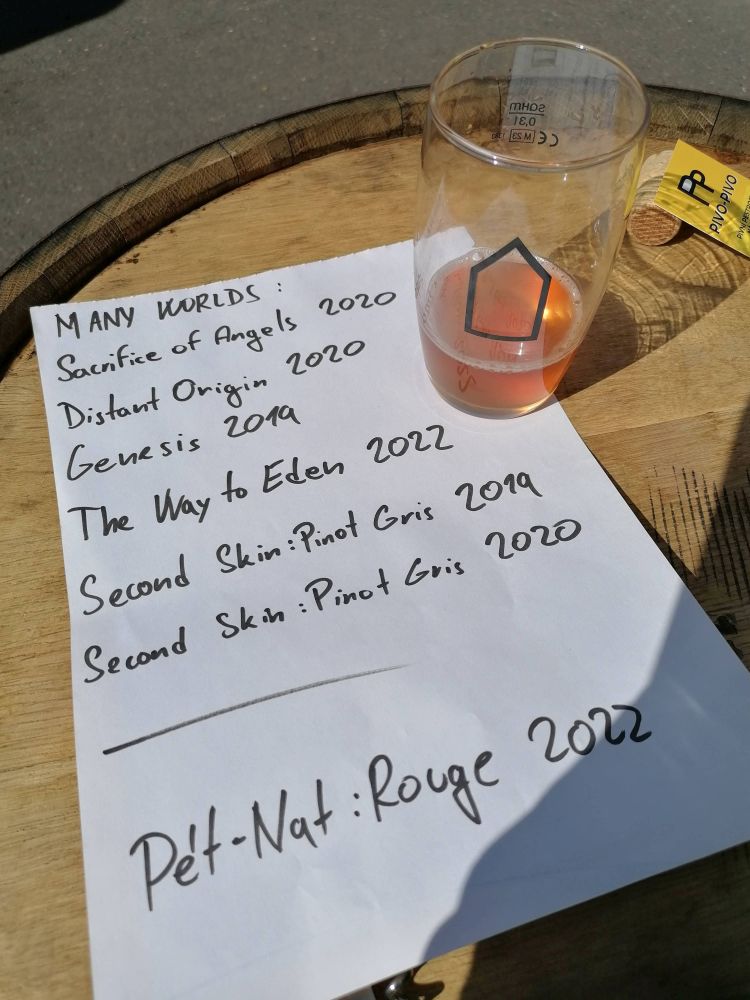 SAHM
0,3l
CE M 23
PP
PIVO-PIVO
MANY WORLDS:
Sacrifice of Angels 2020
Distant Origin 2020
Genesis 2019
The Way to Eden 2022
Second Skin:Pinot Gris 2019
Second Skin:Pinot Gris 2020
Pét-Nat:Rouge 2022